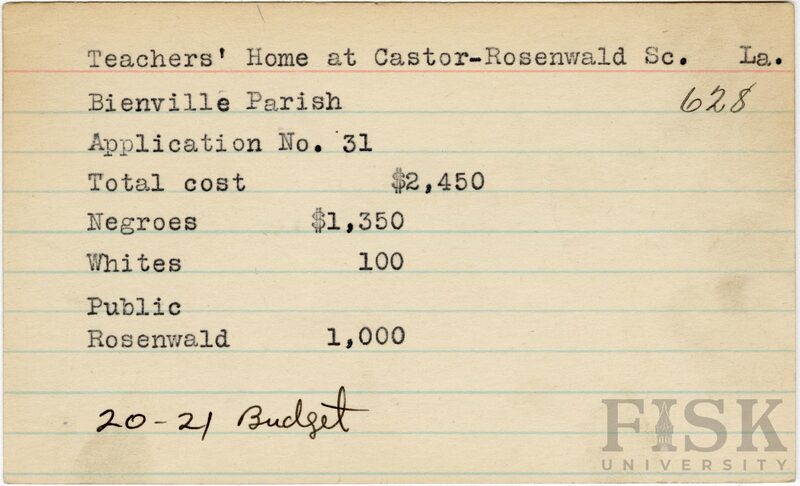 Teachers' Home at Castor-Rosenwald Sc. La.
Bienville Parish 628
Application No. 31
Total cost $2,450
Negroes $1,350
Whites 100
Public
Rosenwald 1,000
20-21 Budget
FISK
UNIVERSITY